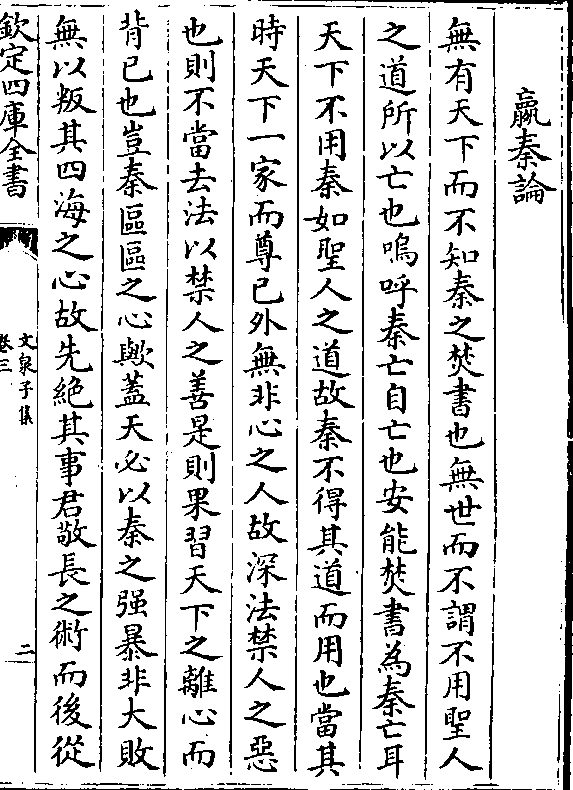 嬴秦論
無有天下而不知秦之焚書也無世而不謂不用聖人
之道所以亡也嗚呼秦亡自亡也安能焚書為秦亡耳
天下不用秦如聖人之道故秦不得其道而用也當其
時天下一家而尊已外無非心之人故深法禁人之惡
也則不當去法以禁人之善是則果習天下之離心而
背已也豈秦區區之心歟蓋天必以秦之强暴非大敗
無以叛其四海之心故先絶其事君敬長之術而後從
欽定四庫全書
文泉子集
卷三
二